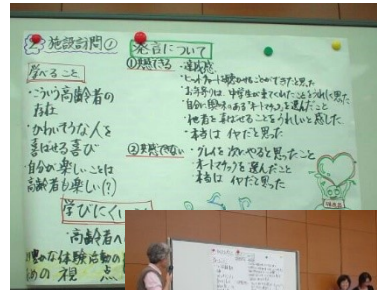 施設訪問①
学べること
・こういう高齢者の
存在
・かわいそうな人を
喜ばせる喜び
・自分が楽しいことは
高齢者も楽しい(?)
学びにくい
・高齢者へ
豊かな体験活動の
めの 視 点
発言について
①共感できる・達成感
・お年寄りは、中学生が来てくれたことをうれしく思った
・自分に興味のある"オートマチック"を選んだこと
・他者を喜ばせることをうれしいと感じた
・本当は イヤだと思った
②共感できない・グレイを次いやると思ったこと
・オートマチックを選んだこと
・本当は イヤだと思った